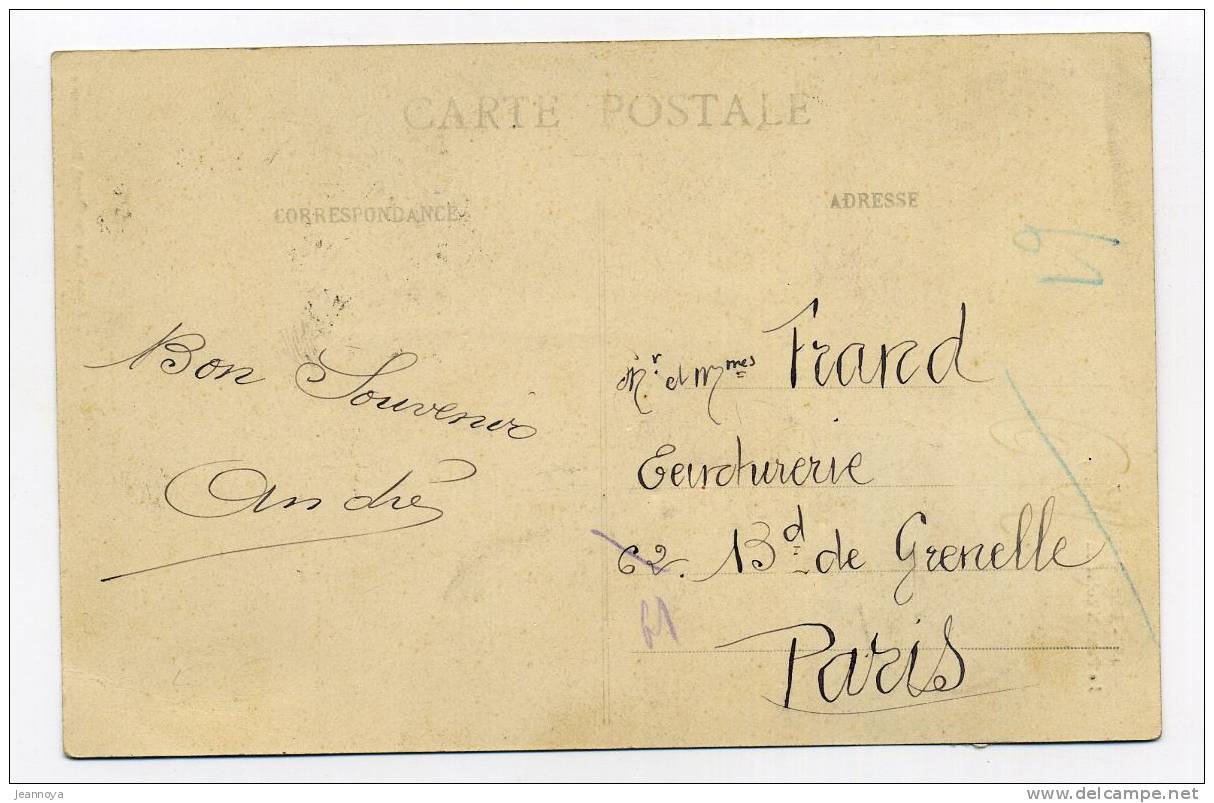 CARTE POSTALE
CORRESPONDANCE
ADRESSE
Bon Souvenir
André
Mr et Mmes Frand
Teinturerie
62. Bd de Grenelle
61
Paris
Jeannoya
www.delcampe.net